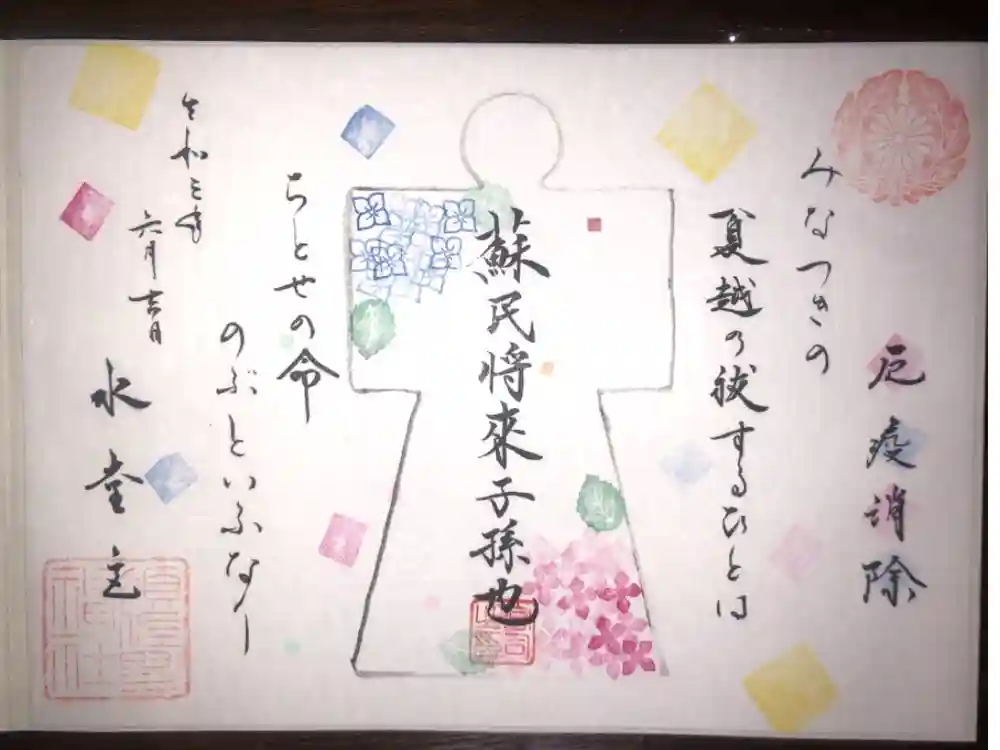 厄疫消除
みなつきの
夏越の祓するひとは
蘇民将来子孫也
ちとせの命
のぶといふなり
令和三年
六月吉日
水堂主